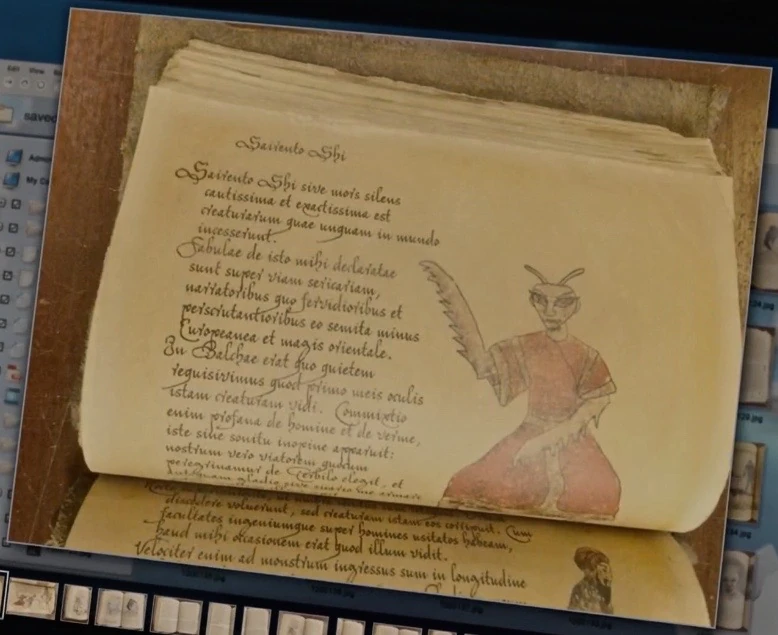 Edit View
saved
Sairento Shi
Sairento Shi sive mors silens
cautissima et exactissima est
creaturarum quae unquam in mundo
incesserunt.
Fabulae de isto mihi declaratae
sunt super viam sericariam,
narratoribus quo fervidioribus et
perscrutantioribus eo semita minus
Europeanea et magis orientale.
In Balchae erat quo quietem
requisivimus quod primo meis oculis
istam creaturam vidi. Commixtio
enim profana de homine et de verme,
iste sine sonitu inopine apparuit:
nostrum vero viatorem quodum
peregrinamur de Cerbilo elegit, et
discedere voluerunt, sed creaturam istam eos corripuit. Cum
facultates ingeniumque super homines usitatos habeam,
haud mihi occasionem erat quod illum vidit.
Velociter enim ad monstrum ingressus sum in longitudine